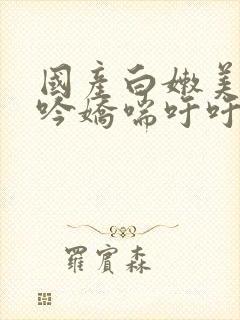 國產白嫩美
吟嬌喘吁吁
羅賓森